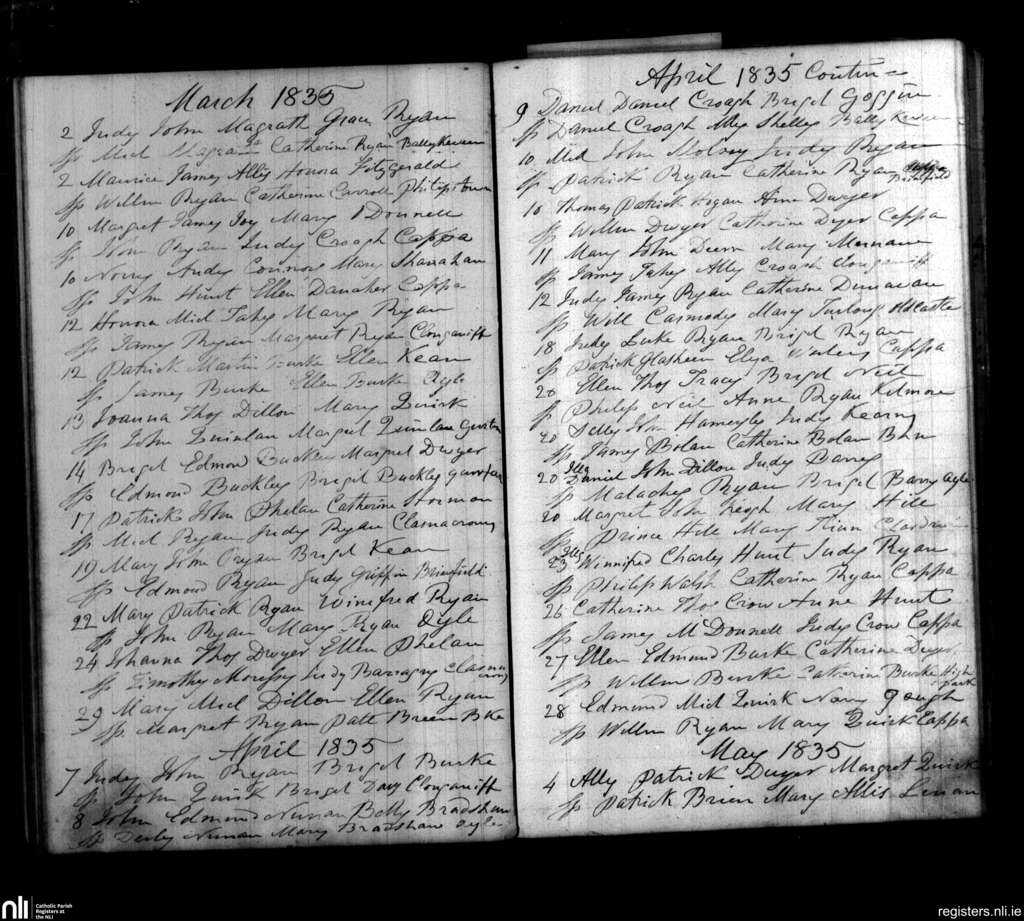 March 1835
2 Judy John Magrath Grace Ryan
Sp Mich Magrath Catherine Ryan Ballykeveen
2 Maurice James Allis Honora Fitzgerald
Sp Willm Ryan Catherine Carroll Philipstown
10 Margret James Joy Mary ODonnell
Sp John Ryan Judy Croagh Cappa
10 Norry Andy Connors Mary Shanahan
Sp John Hunt Ellen Danaher Cappa
12 Honora Mich Fahey Mary Ryan
Sp James Ryan Margaret Ryan Clonganiff
12 Patrick Martin Burke Ellen Kean
Sp James Burke Ellen Burke Ayle
13 Joanna Thos Dillon Mary Quirk
Sp John Quinlan Margret Quinlan
14 Briget Edmond Buckley Margret Dwyer
Sp Edmond Buckley Briget Buckley
17 Patrick John Phelan Catherine
Sp Mich Ryan Judy Ryan Clonacrony
19 Mary John Ryan Briget Kean
Sp Edmond Ryan Judy Griffin Brianfield
22 Mary Patrick Ryan Winifred Ryan
Sp John Ryan Mary Ryan Ayle
24 Johanna Thos Dwyer Ellen Phelan
Sp Timothy Judy
29 Mary Mich Dillon Ellen Ryan
Sp Margret Ryan Patt Breen
April 1835
7 Judy John Ryan Briget Burke
Sp John Quirk Briget Davy Clonganiff
8 John Edmond Nunan Betty Bradshaw
Sp Derby Nunan Mary Bradshaw Ayle
April 1835 Contin=
9 Daniel Daniel Croagh Briget Goggin
Sp Daniel Croagh Ally Shelley Ballykeveen
10 Mich John Molroy Judy Ryan
Sp Patrick Ryan Catherine Ryan Brianfield
10 Thomas Patrick Hogan Anne Dwyer
Sp Willm Dwyer Catherine Dyer Cappa
11 Mary John Mary
Sp James Fahey Ally Croagh Clonganiff
12 Judy James Ryan Catherine Dunavan
Sp Will Carmody Mary Furlong Oldcastle
18 Judy Luke Ryan Briget Ryan
Sp Patrick Glasheen Eliza Cappa
20 Ellen Thos Tracy Briget Neil
Sp Philip Neil Anne Ryan Kilmore
20 Judy Kearny
Sp James Bolan Catherine Bolan
20 Illg Daniel John Dillon Judy Barry
Sp Malachy Ryan Briget Barry Ayle
20 Margret John Keogh Mary Hill
Sp Prince Hill Mary
23 Illg Winnifred Charles Hunt Judy Ryan
Sp Philip Walsh Catherine Ryan Cappa
26 Catherine Thos Crow Anne Hunt
Sp James McDonnell Judy Crow Cappa
27 Ellen Edmund Burke Catherine Dwyer
Sp Willm Burke Catherine Burke High park
28 Edmund Mich Quirk Nancy Gough
Sp Willm Ryan Mary Quirk Cappa
May 1835
4 Ally Patrick Dwyer Margret Quirk
Sp Patrick Brien Mary Allis
nli Catholic Parish Registers at the NLI
registers.nli.ie